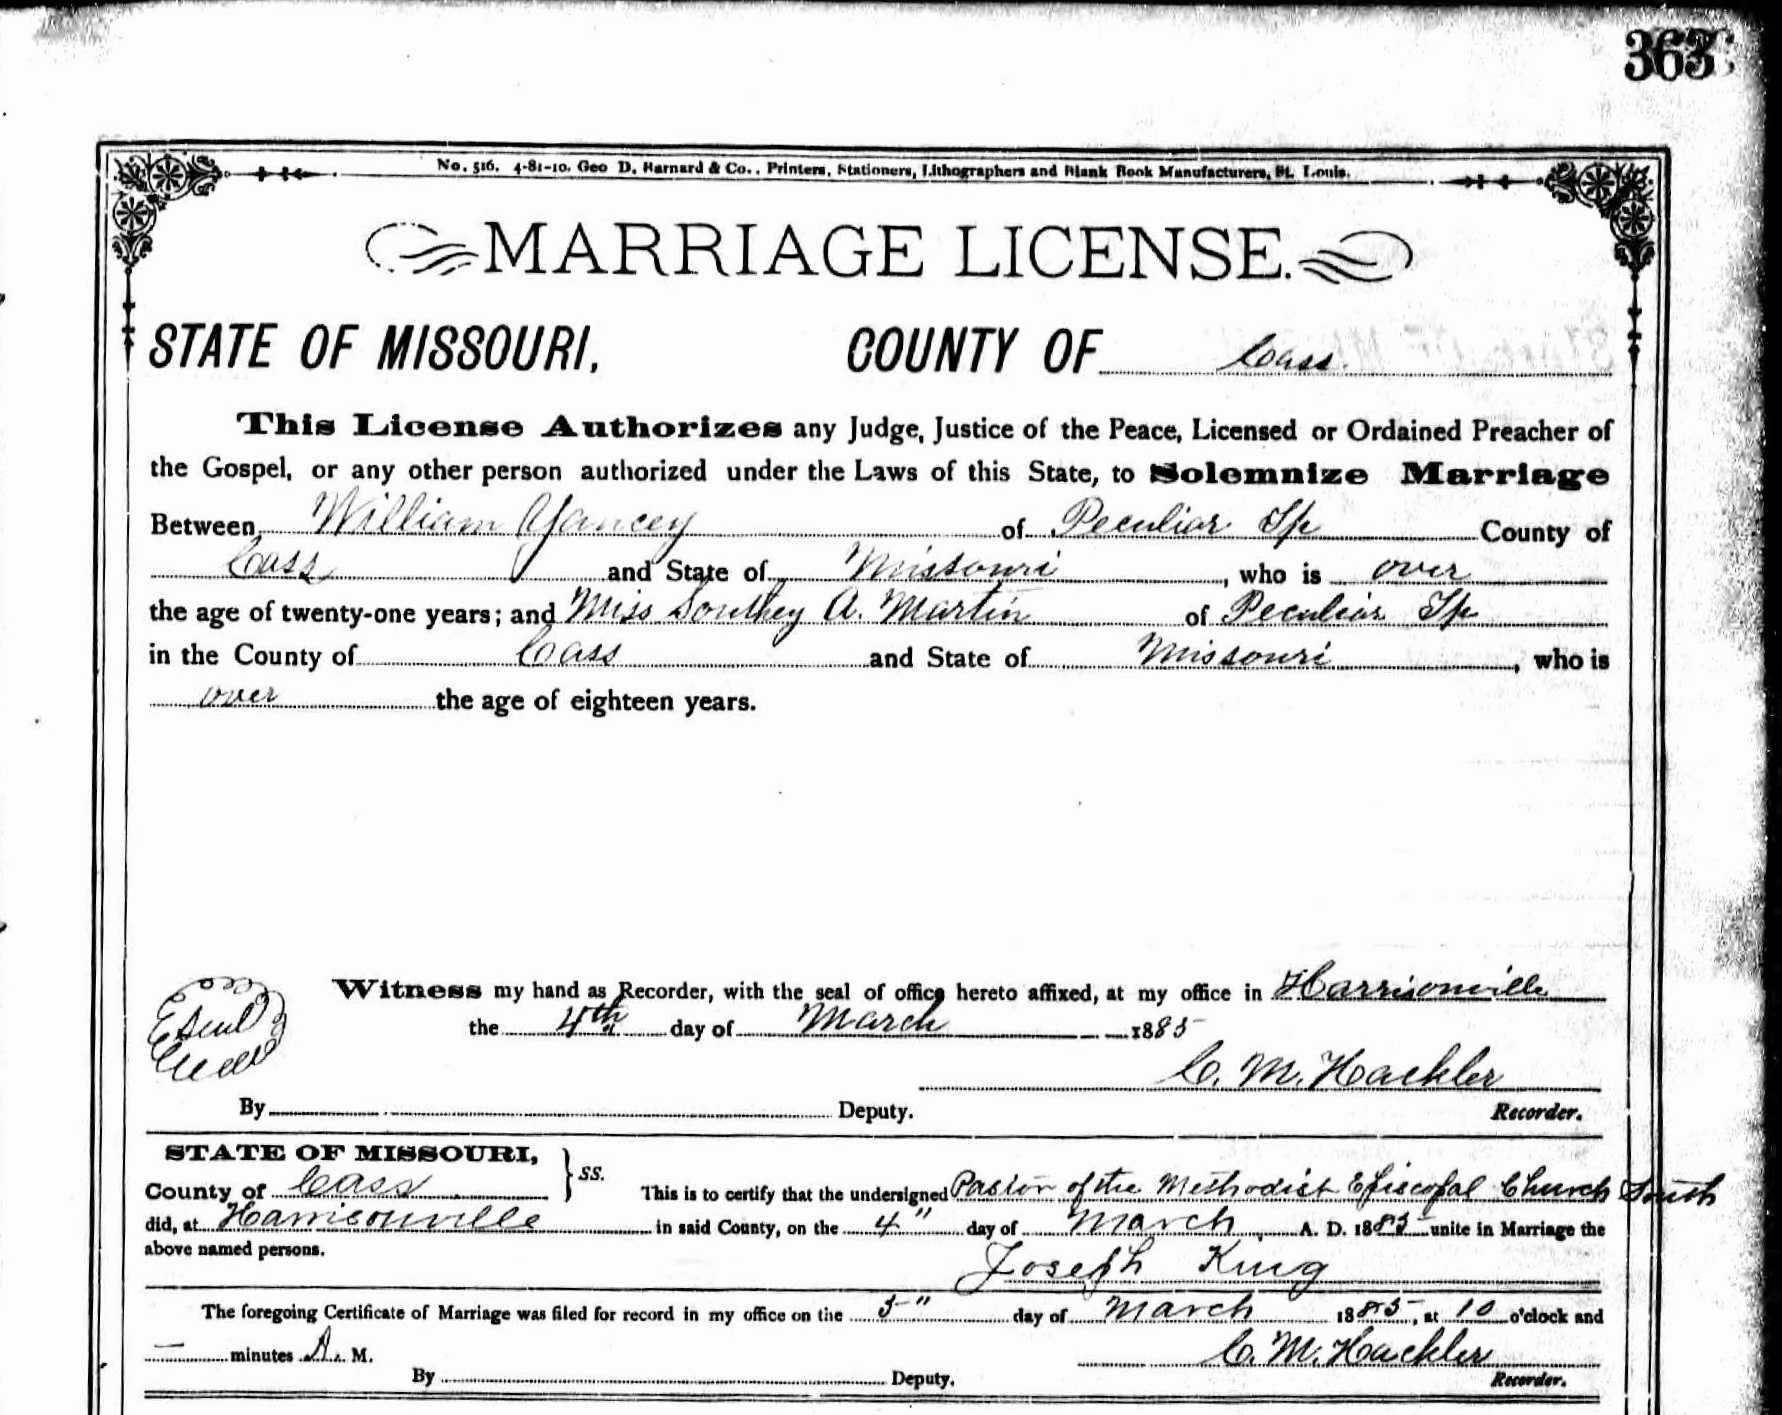 363
No. 516. 4-81-10. Geo D. Barnard & Co., Printers, Stationers, Lithographers and Blank Book Manufacturers, St. Louis.
MARRIAGE LICENSE.
STATE OF MISSOURI, COUNTY OF Cass.
This License Authorizes any Judge, Justice of the Peace, Licensed or Ordained Preacher of
the Gospel, or any other person authorized under the Laws of this State, to Solemnize Marriage
Between William Yancey of Peculiar Tp County of
Cass and State of Missouri, who is over
the age of twenty-one years; and Miss Southey A. Martin of Peculiar Tp
in the County of Cass and State of Missouri, who is
over the age of eighteen years.
Witness my hand as Recorder, with the seal of office hereto affixed, at my office in Harrisonville
the 4th day of March 1885
Seal
C. M. Hackler
By Deputy. Recorder.
STATE OF MISSOURI,
County of Cass } SS. This is to certify that the undersigned Pastor of the Methodist Episcopal Church South
did, at Harrisonville in said County, on the 4" day of March, A. D. 1885 unite in Marriage the
above named persons.
Joseph King
The foregoing Certificate of Marriage was filed for record in my office on the 5" day of March 1885, at 10 o'clock and
— minutes A. M. C. M. Hackler
By Deputy. Recorder.